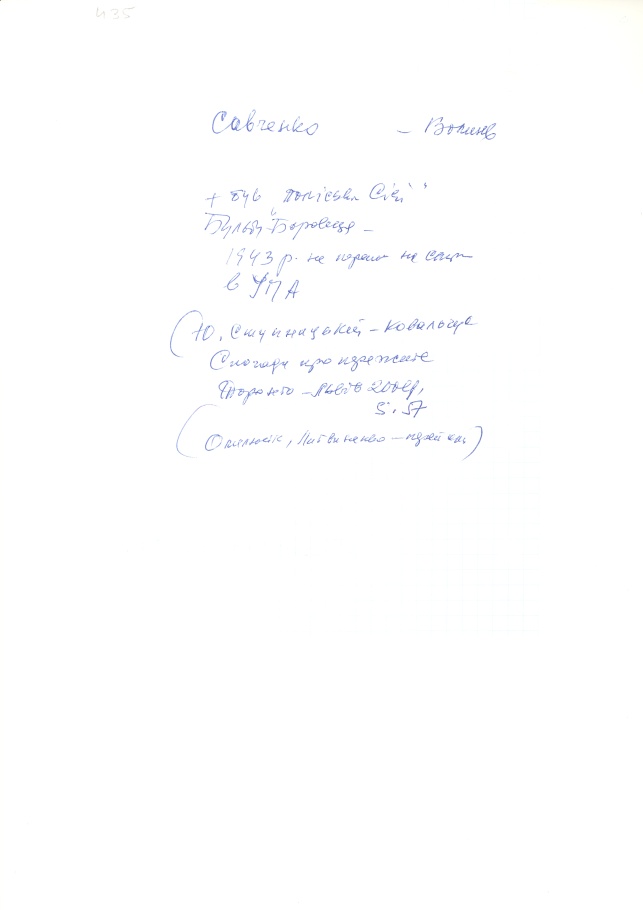 435
Савченко – Волинь
+ був „Поліська Січ"
Бульби-Боровця –
1943 р. не на
в УПА
(Ю. Ступницький – Ковальчук
Спогади про пережите
Торонто – Львів 2000р,
S. 57
(Омелюсік, Литвиненко –)